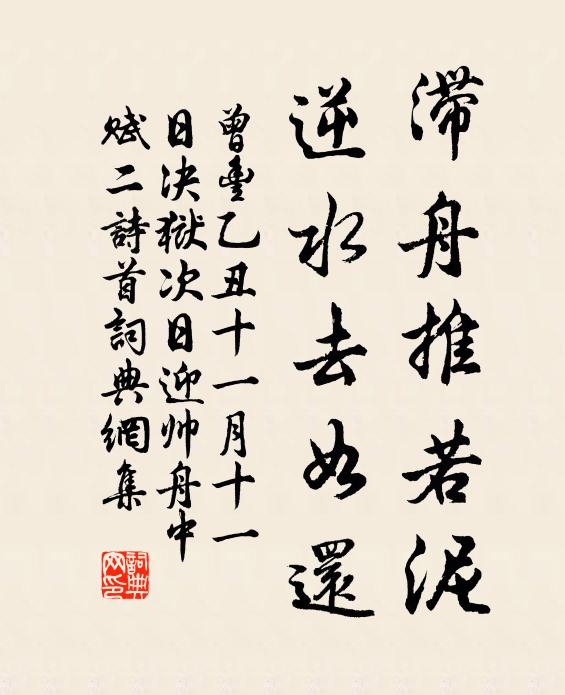 滞舟推若泥
逆水去如還
曾豊乙丑十一月十一
日决狱次日迎帅舟中
赋二詩首詞典網集
詞典
网印